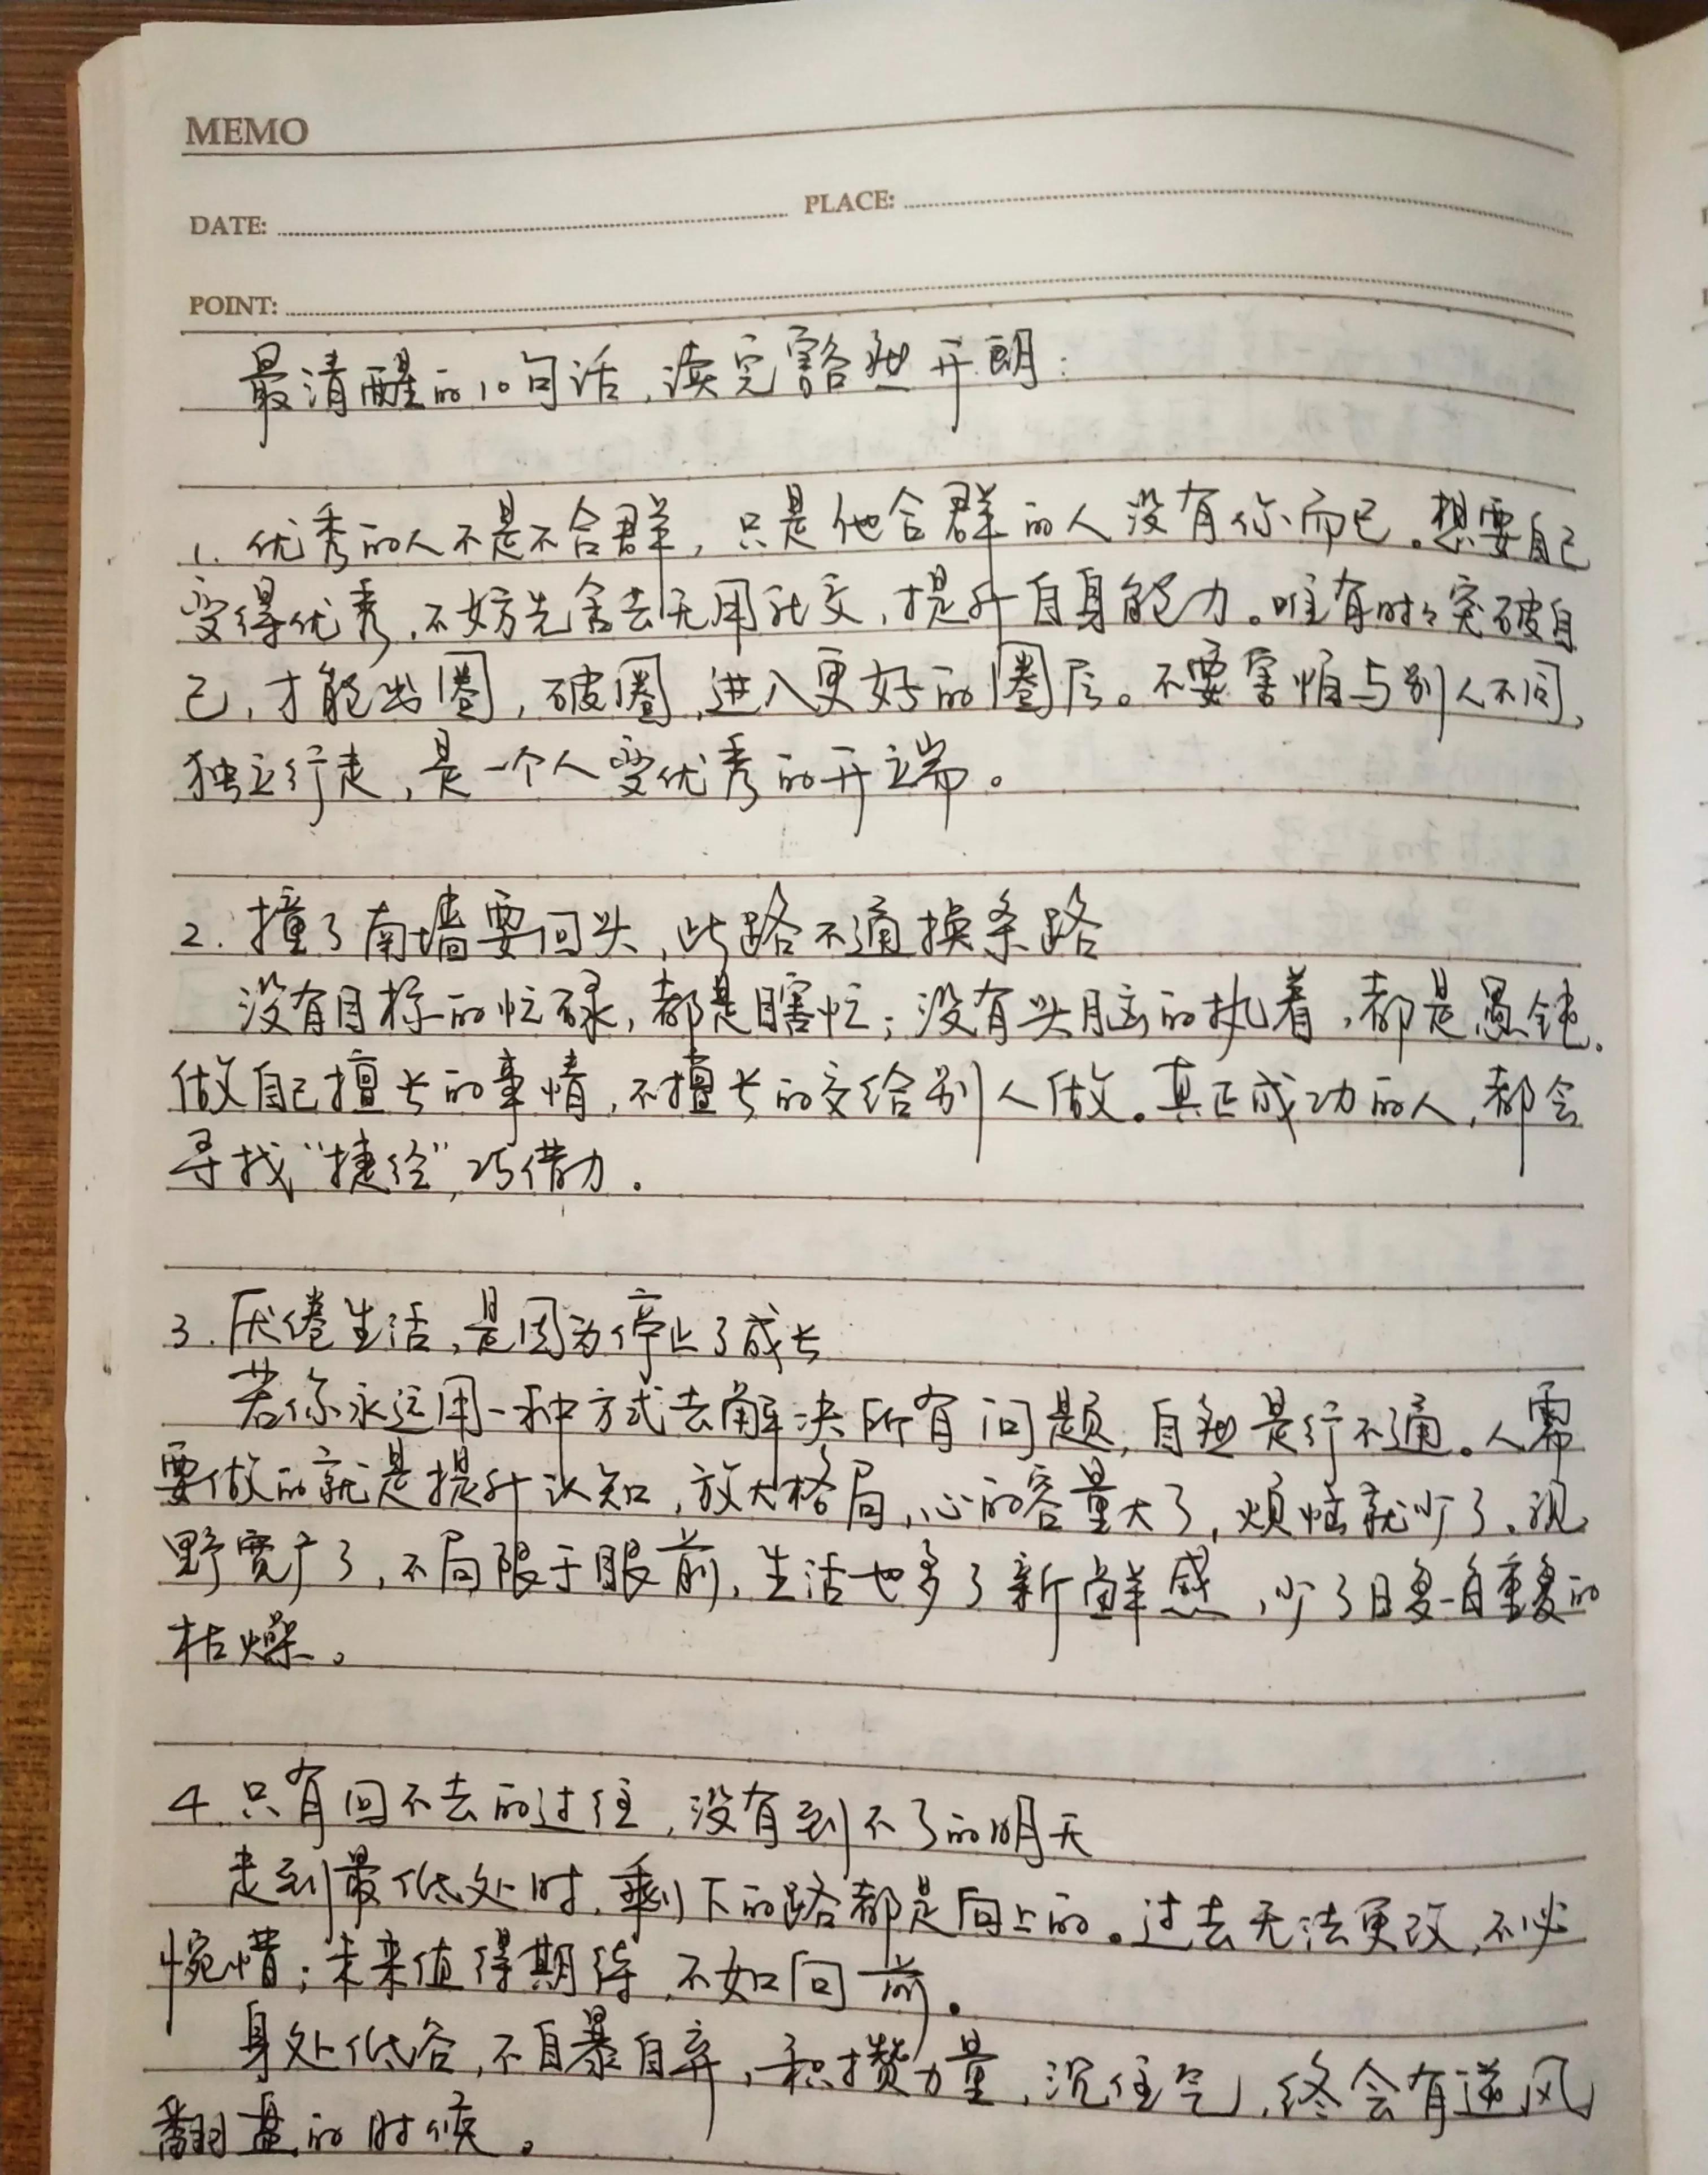 MEMO
DATE:
PLACE:
POINT:
最清醒的10句话,读完豁然开朗:
1. 优秀的人不是不合群,只是他合群的人没有你而已。想要自己
变得优秀,不妨先舍去无用社交,提升自身能力。唯有时々突破自
己,才能出圈,破圈,进入更好的圈层。不要害怕与别人不同,
独立行走,是一个人变优秀的开端。
2. 撞了南墙要回头,此路不通换条路
没有目标的忙碌,都是瞎忙;没有头脑的执着,都是愚钝。
做自己擅长的事情,不擅长的交给别人做。真正成功的人,都会
寻找“捷径”,巧借力.
3.厌倦生活,是因为停止了成长
若你永远用一种方式去解决所有问题,自然是行不通。人需
要做的就是提升认知,放大格局,心的容量大了,烦恼就少了、视
野宽广了,不局限于眼前,生活也多了新鲜感,少了日复一日重复的
枯燥。
4.只有回不去的过往,没有到不了的明天
走到最低处时,剩下的路都是向上的。过去无法更改,不必
惋惜;未来值得期待,不如向前。
身处低谷,不自暴自弃,积攒力量,沉住气,终会有逆风
翻盘的时候。